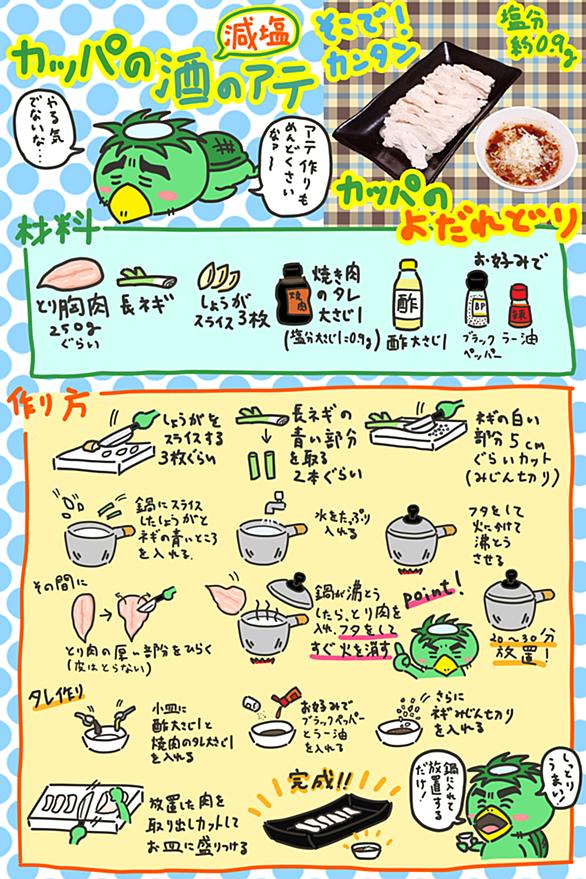 減塩
カッパの酒のアテ
やる気
でないな…
アテ作りも
めんどくさい
なァ〜
そこで!
カンタン
塩分
約0.9g
カッパの
よだれどり
材料
とり胸肉
250g
ぐらい
長ネギ
しょうが
スライス3枚
焼肉
焼き肉
のタレ
大さじ1
(塩分大さじ1=0.9g)
酢
酢大さじ1
お好みで
BP
ブラック
ペッパー
辣
ラー油
作り方
しょうがを
スライスする
3枚ぐらい
長ネギの
青い部分
を取る
2本ぐらい
ネギの白い
部分5cm
ぐらいカット
(みじん切り)
鍋にスライス
したしょうがと
ネギの青いところ
を入れる
水をたっぷり
入れる
フタをして
火にかけて
沸とう
させる
その間に
とり肉の厚い部分をひらく
(皮はとらない)
鍋が沸とう
したら、とり肉を
入れ、フタをして
すぐ火を消す
point!
20〜30分
放置!
タレ作り
小皿に
酢大さじ1と
焼肉のタレ大さじ1
を入れる
お好みで
ブラックペッパー
とラー油
を入れる
さらに
ネギみじん切り
を入れる
放置した肉を
取り出しカットして
お皿に盛りつける
完成!!
鍋に入れて
放置する
だけ!
しっとり
うまい!